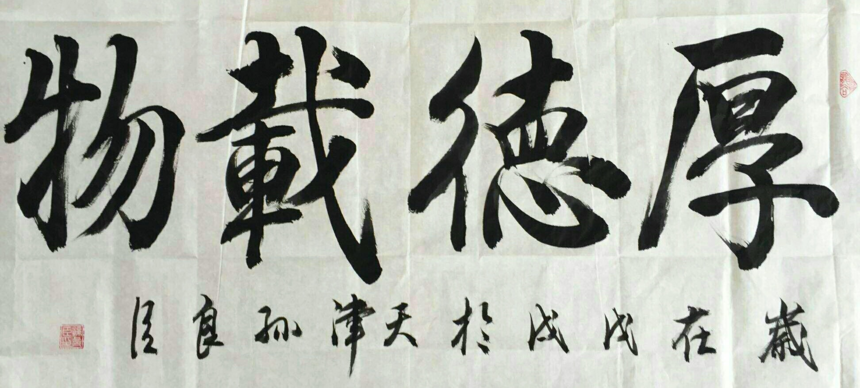 厚德載物
歲在戊戌於天津孫良